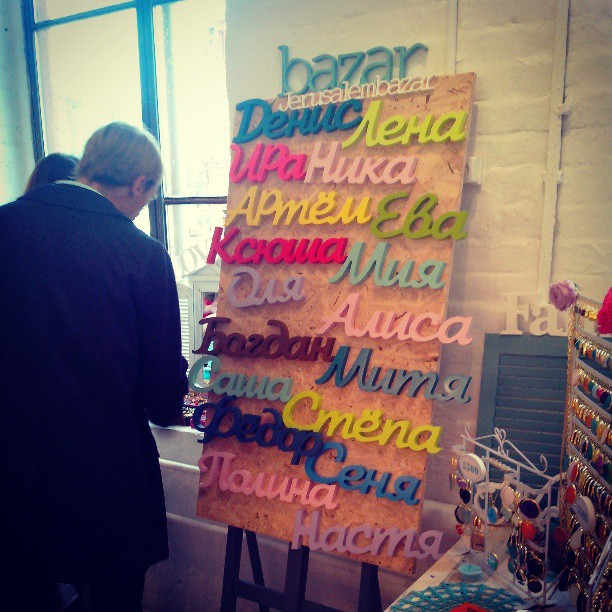 bazar
Jerusalembazar
Денис Лена
Ира Ника
Артём Ева
Ксюша Мия
Оля
Алиса
Богдан Митя
Саша Стёпа
Фёдор Сеня
Полина
Настя